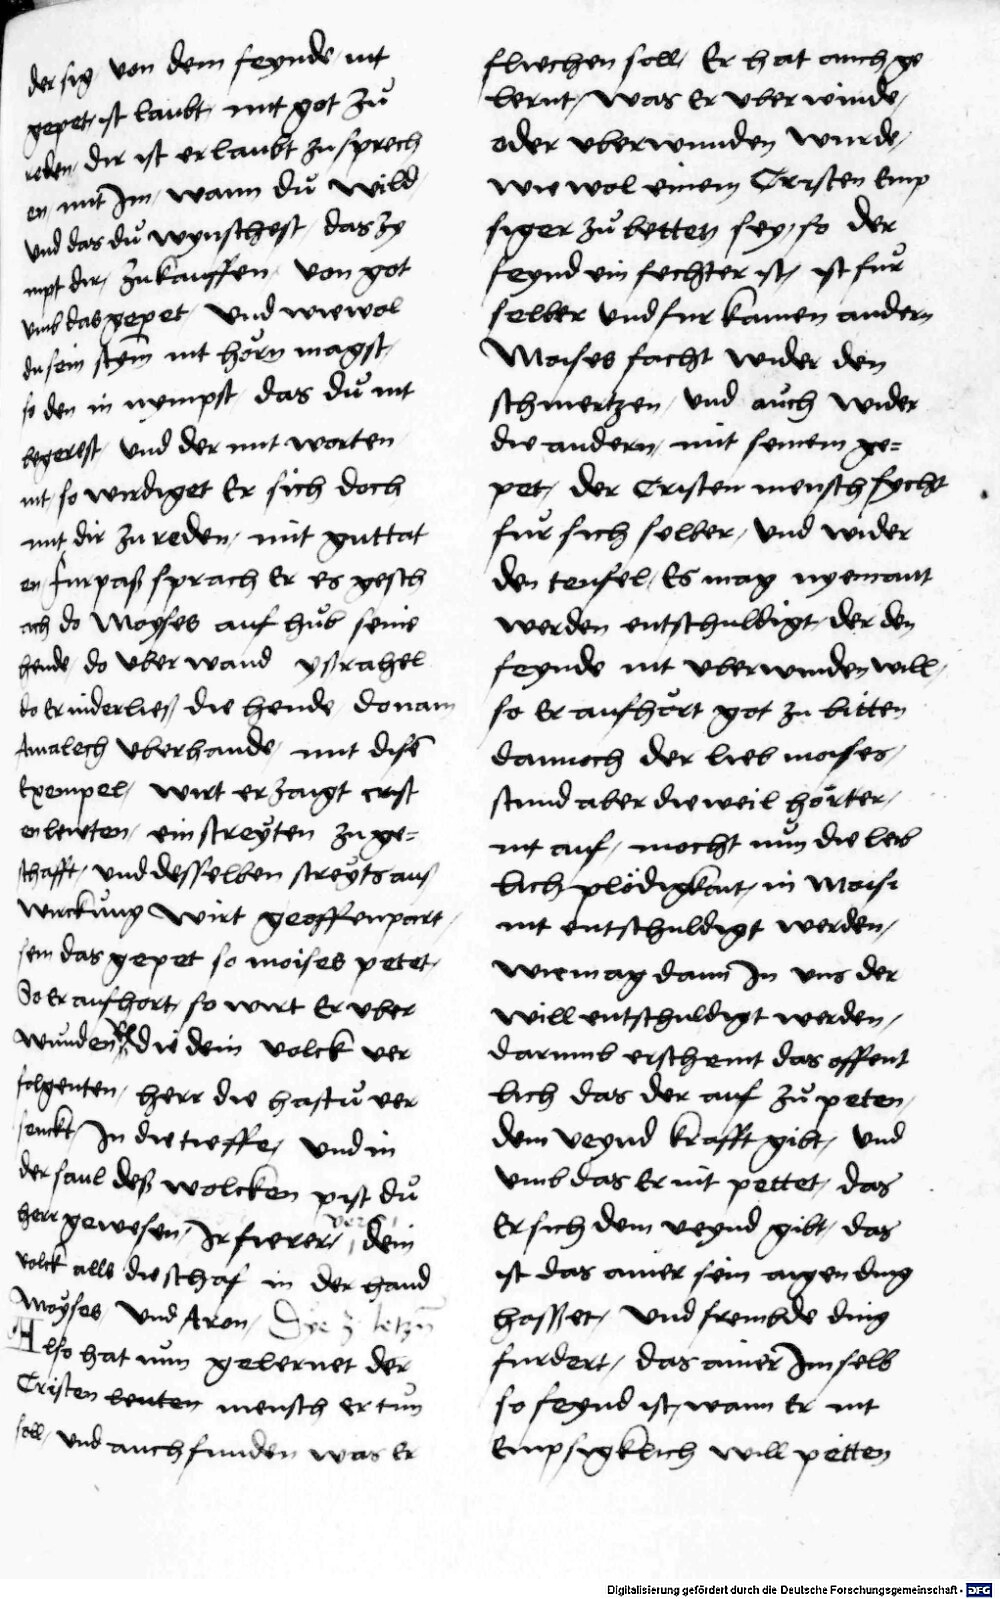 der sig / von dem feynde / nit
gepet / ist laubt / mit got zů
reden / dir ist erlaubt zu sprech
en / mit Im / wann dů wild /
und das dů wynschest / das zy
mpt dir / zukauffen / von got
umb das gepet / und wiewol
du sein stem nit hőrn magst /
so den in nympst / das dů nit
begerest / und der mit worten /
nit / so wirdiget Er sich doch
mit dir zu reden / mit guttat
en / furpaß sprach Er es gesch
ach do Moyses auf hůb seine
hende / do uberwand yßrahel
do Er niderließ die hende / do nam
Amalech uberhande / mit disem
Exempel / wirt erzaigt crist
enleuten / ein streÿten zu ge=
schafft / und desselben streÿts auß
wirckůng wirt geoffenpart /
sein das gepet so moises petet /
So Er aufhort / so wirt Er uber
wunden / die dein volck ver
folgenten / herr die hastů ver
senckt / In die tieffe / und in
der saul deß wolcken pist dů
herr gewesen / Ir fierer / dein
volck alls die schaf in der hand
Moÿses / und Aron /
Also hat nun gelernet der
Cristen leuten mensch er tun
soll / und auch funden was Er
fliechen soll / Er hat auch ge
lernt / was Er uberwinde /
oder uberwunden wurde /
wiewol einem Cristen Emp
siger zů betten sey / so der
feynd ein fechter ist / ist fůr
selber und fur kamen andern
Moises facht wider den
schmertzen / und aůch wider
die andern / mit seinem ge=
pet / der Cristen mensch fycht
fůr sich selber / und wider
den teufel / Es mag nyemant
werden entschuldigt / der den
feynde nit uberwinden will /
so Er aufhőrt got zu bitten
dannoch der lieb moises /
stund aber dieweil hőrter /
nit auf / mocht nůn die leib
lich plődigkait / in Moisi
nit entschuldigt werden /
wie mag dann In uns der
will entschuldigt werden /
darumb erscheint das offent
lich das der auf zů peten /
dem veynd krafft gibt / und
umb das Er nit pettet / das
Er sich dem veynd gibt / das
ist das ainer sein aigen ding
hasset / und frembde ding
furdert / das ainer Im selb
so feynd ist / wann Er nit
Empsigklich will petten
Digitalisierung gefördert durch die Deutsche Forschungsgemeinschaft - DFG